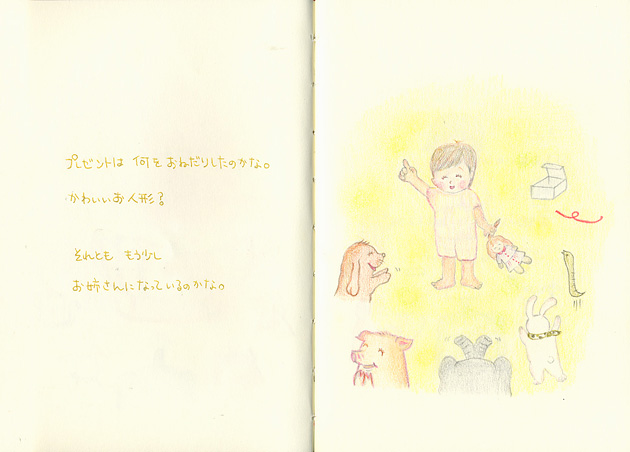 プレゼントは 何を おねだりしたのかな。
かわいいお人形？
それとも もう少し
お姉さんになっているのかな。